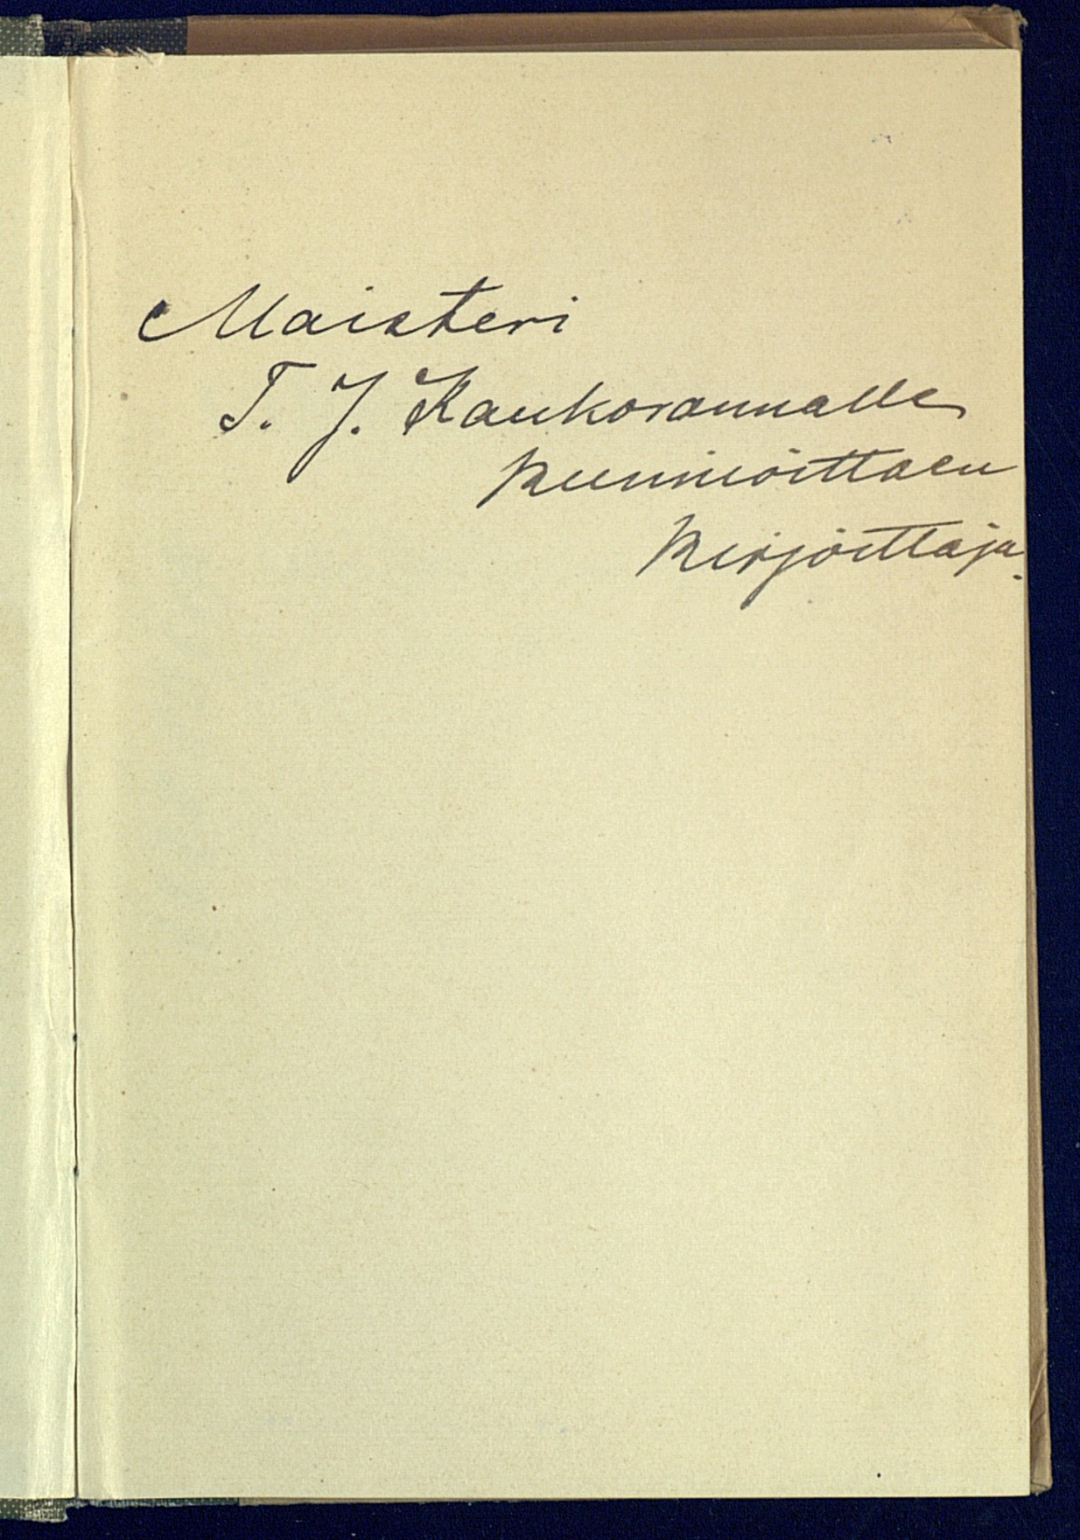 Maisteri
T. J. Kaukorannalle
kunnioittaen
kirjoittaja.